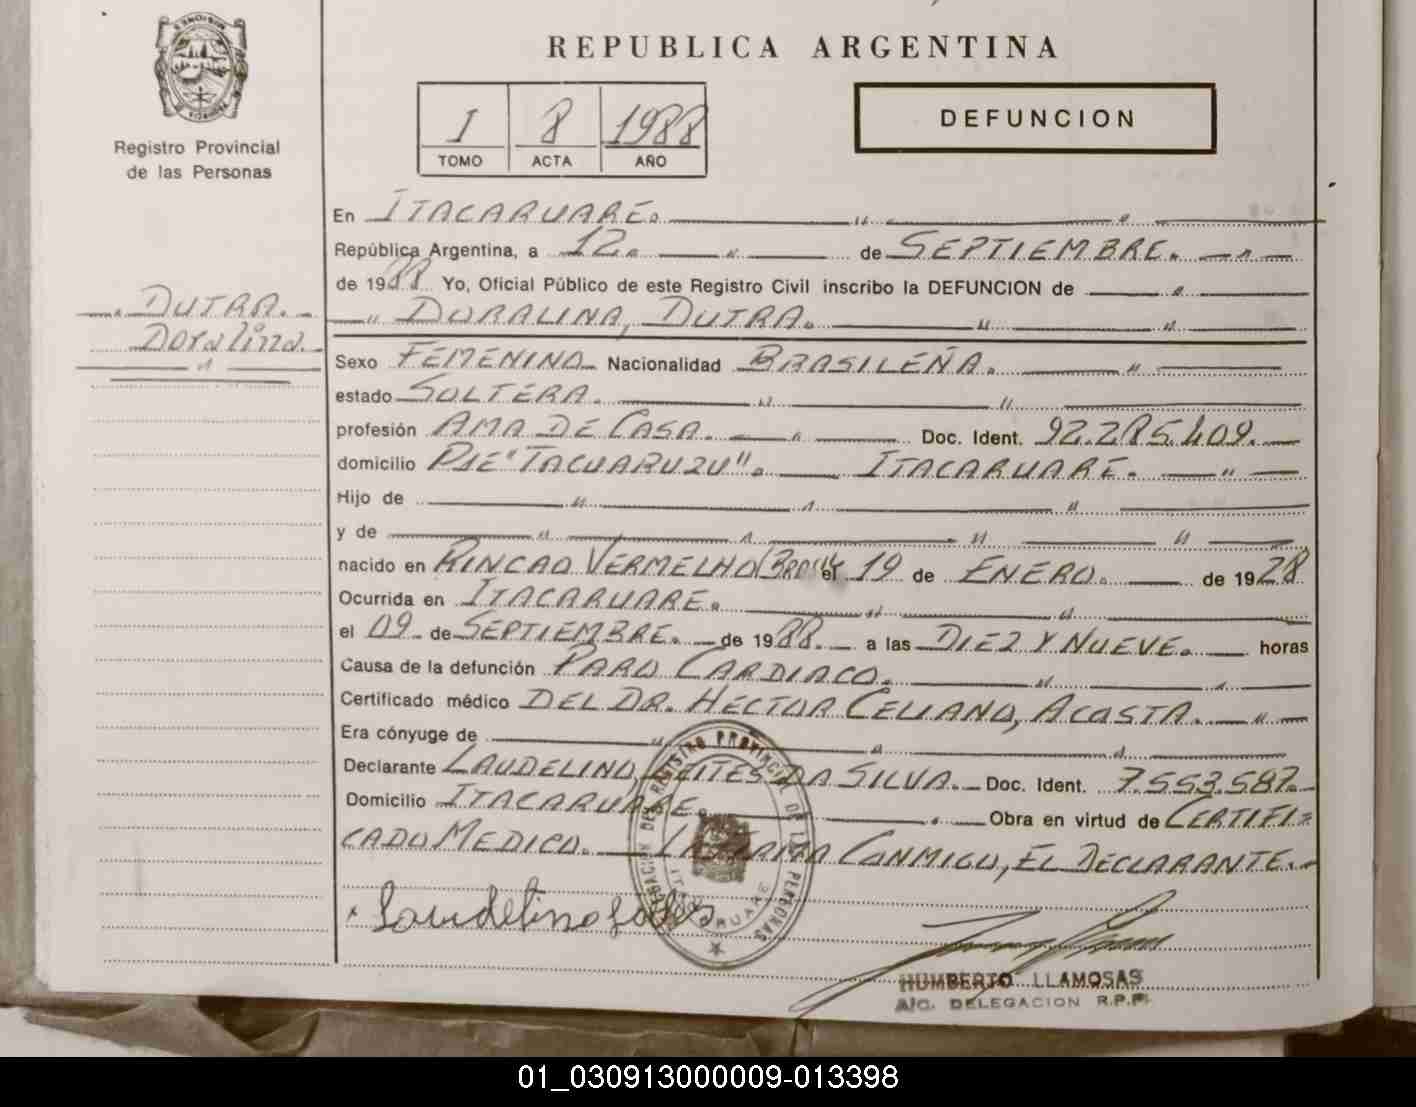 REPUBLICA ARGENTINA
MISIONES
Registro Provincial
de las Personas
I 8 1988
TOMO ACTA AÑO
DEFUNCION
DUTRA.
Doralina.
En ITACARUARE.
República Argentina, a 12. de SEPTIEMBRE.
de 1988 Yo, Oficial Público de este Registro Civil inscribo la DEFUNCION de
DORALINA, DUTRA.
Sexo FEMENINO Nacionalidad BRASILEÑA.
estado SOLTERA.
profesión AMA DE CASA. Doc. Ident. 92.285.409.
domicilio PJE "TACUARUZU". ITACARUARE.
Hijo de
y de
nacido en RINCAO VERMELHO (Brasil) el 19 de ENERO. de 1928
Ocurrida en ITACARUARE.
el 09 de SEPTIEMBRE. de 1988. a las DIEZ Y NUEVE. horas
Causa de la defunción PARO CARDIACO.
Certificado médico DEL DR. HECTOR CELIANO, ACOSTA.
Era cónyuge de
Declarante LAUDELINO, LEITES DA SILVA. Doc. Ident. 7.553.587.
Domicilio ITACARUARE. Obra en virtud de CERTIFI=
CADO MEDICO. CONMIGO, EL DECLARANTE.
DELEGACION DEL REGISTRO PROVINCIAL DE LAS PERSONAS
ITACARUARE
Laudelino
HUMBERTO LLAMOSAS
A/C. DELEGACION R.P.P.
01_030913000009-013398